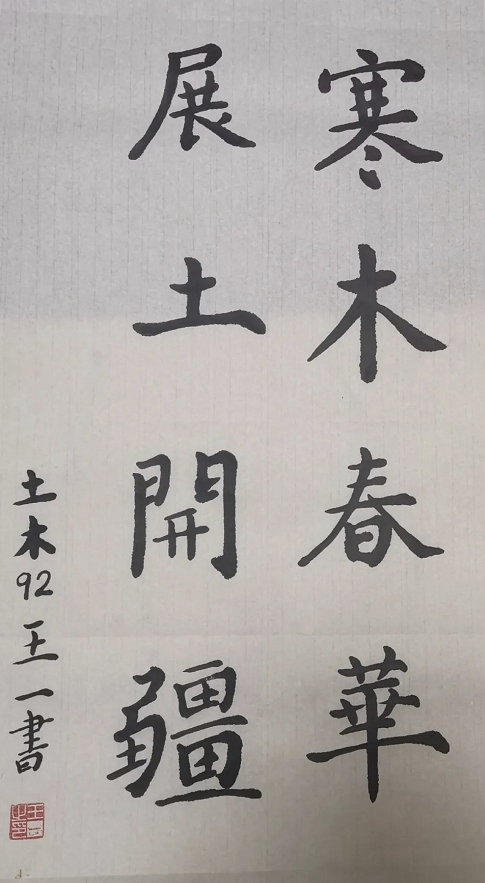 寒木春華
展土開疆
土木92王一書